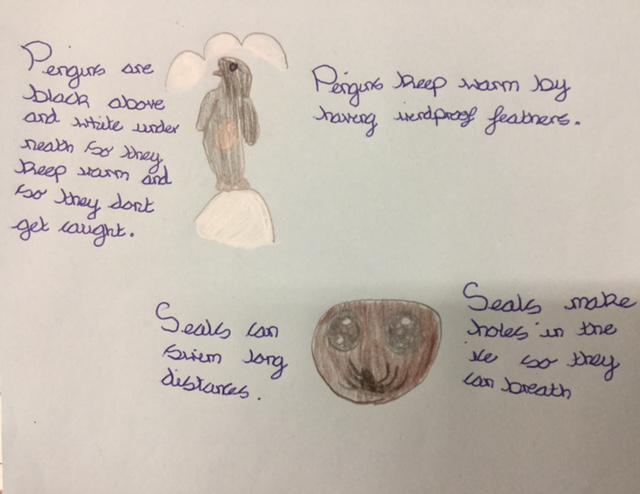 Penguns are
black above
and white under
neath so they
keep warm and
so they dont
get caught.
Penguns keep warm by
having windproof feathers.
Seals can
swim long
distances.
Seals make
holes in the
ice so they
can breath